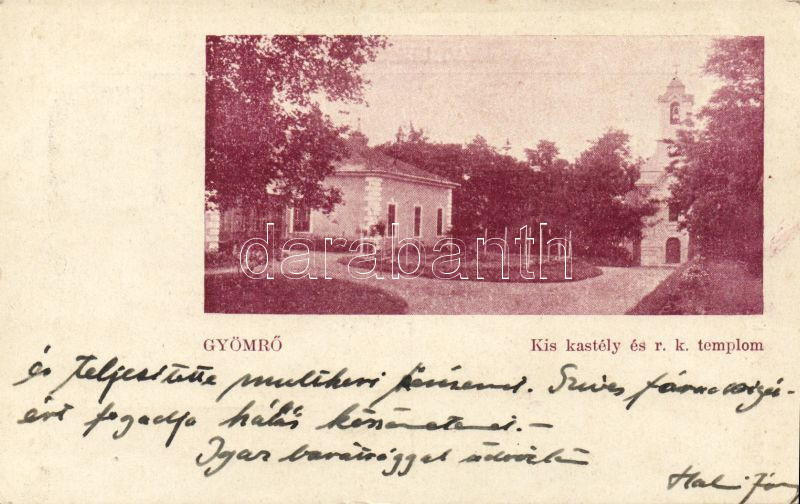 darabanth
GYÖMRŐ
Kis kastély és r. k. templom
és teljesítette multkori kérésemet. Szíves fáradozásá-
ért fogadja hálás köszönetemet. –
Igaz barátsággal üdvözli